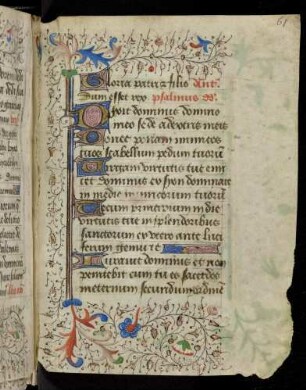 61
Gloria patri et filio Ant.
Dum esset rex psalmus dd.
Dixit dominus domino
meo sede a dextris meis
Donec ponam inimicos
tuos scabellum pedum tuorum
Virgam virtutis tue emi
tet dominus ex syon dominare
in medio inimicorum tuorum
Tecum principium in die
virtutis tue in splendoribus
sanctorum ex utero ante luci
ferum genui te
Iurauit dominus et non
penitebit eum tu es sacerdos
in eternum secundum ordine